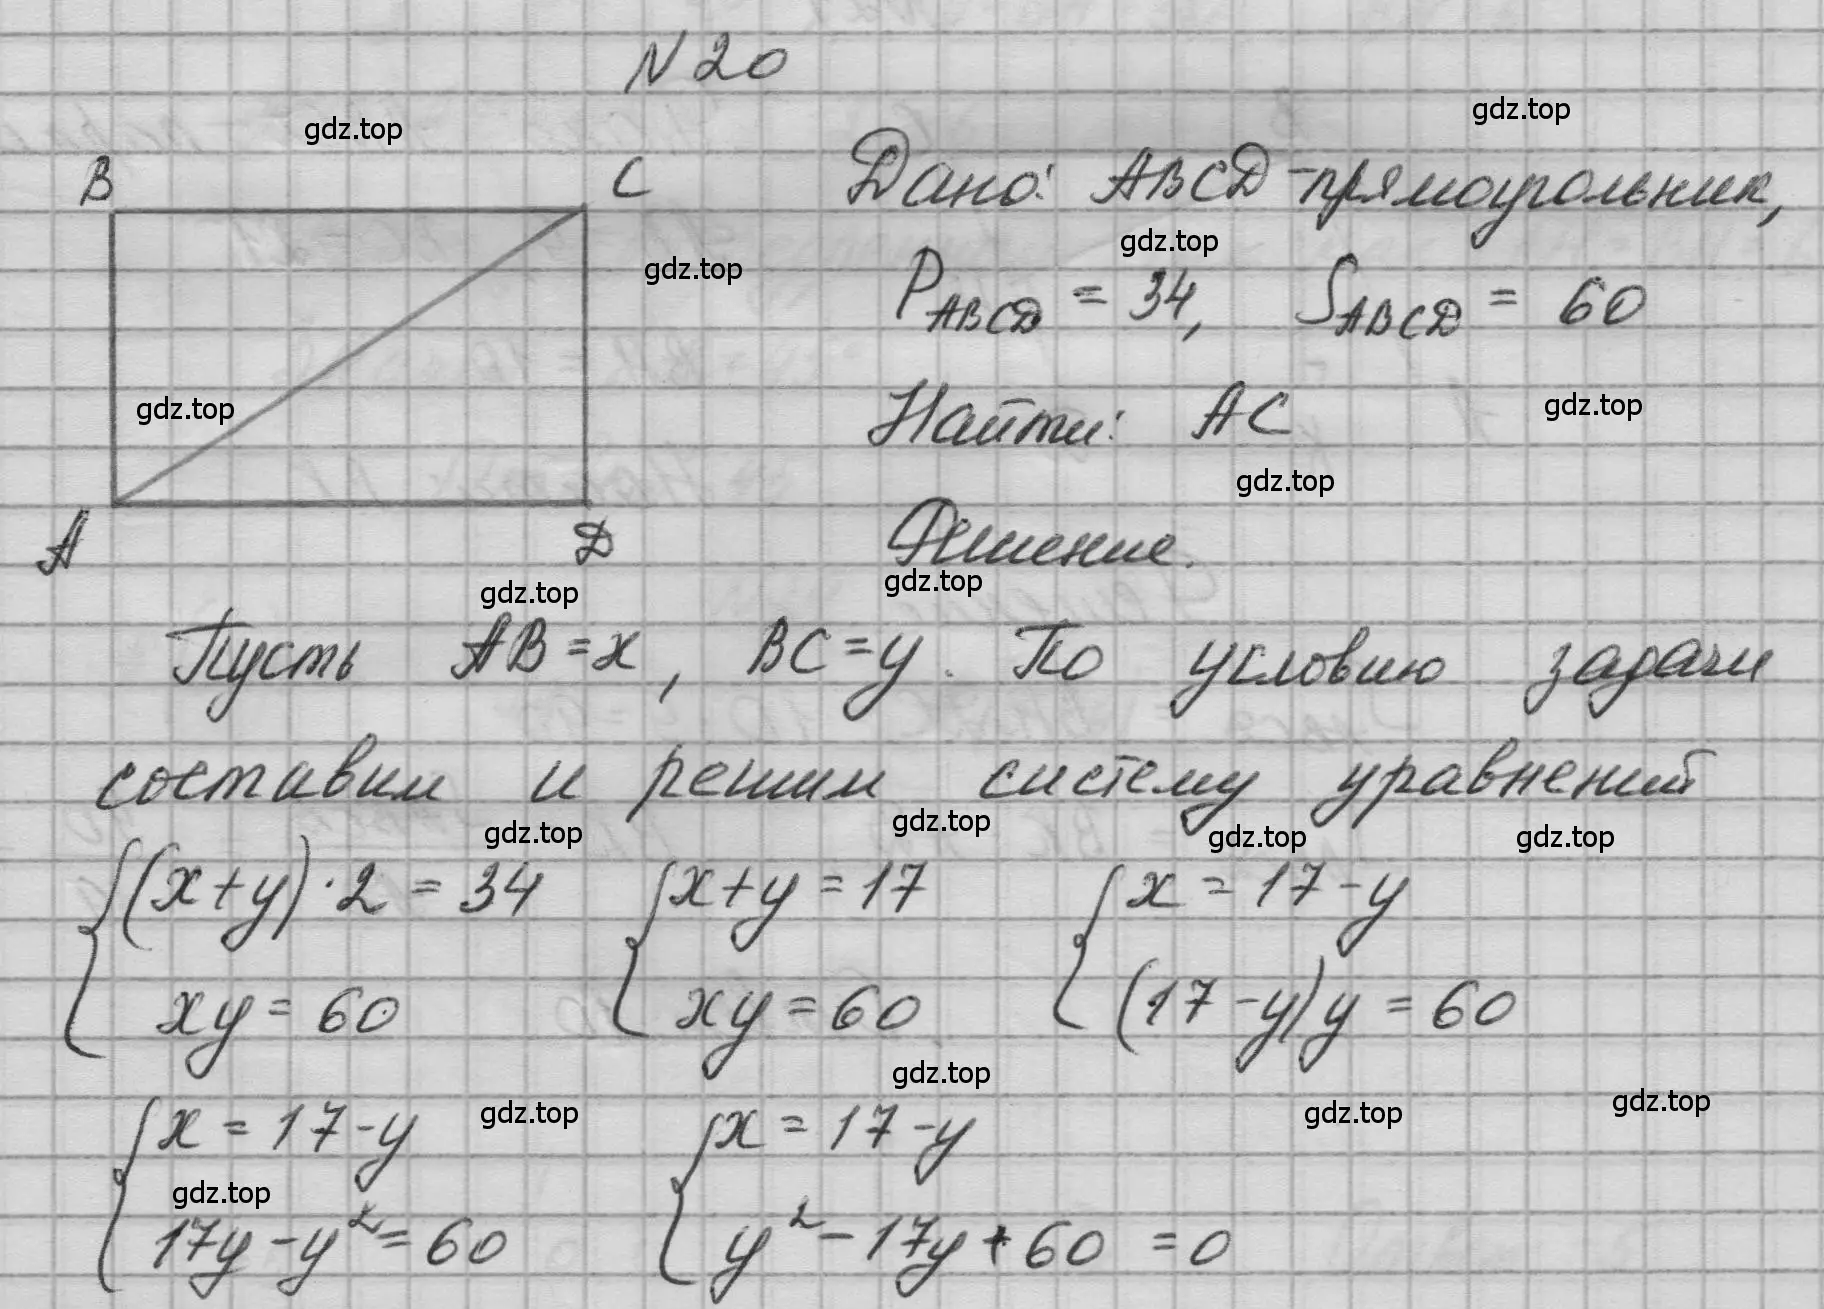 N 20
gdz.top
gdz.top
B C
Дано: ABCD - прямоугольник,
gdz.top
gdz.top
P_ABCD = 34, S_ABCD = 60
gdz.top
Найти: AC
gdz.top
gdz.top
A D
Решение.
gdz.top
gdz.top
Пусть AB = x, BC = y. По условию задачи
составим и решим систему уравнений
gdz.top
gdz.top
gdz.top
gdz.top
{(x+y)·2 = 34 {x+y = 17 {x = 17-y
xy = 60 xy = 60 (17-y)y = 60
gdz.top
gdz.top
gdz.top
gdz.top
{x = 17-y {x = 17-y
gdz.top
17y - y² = 60 y² - 17y + 60 = 0